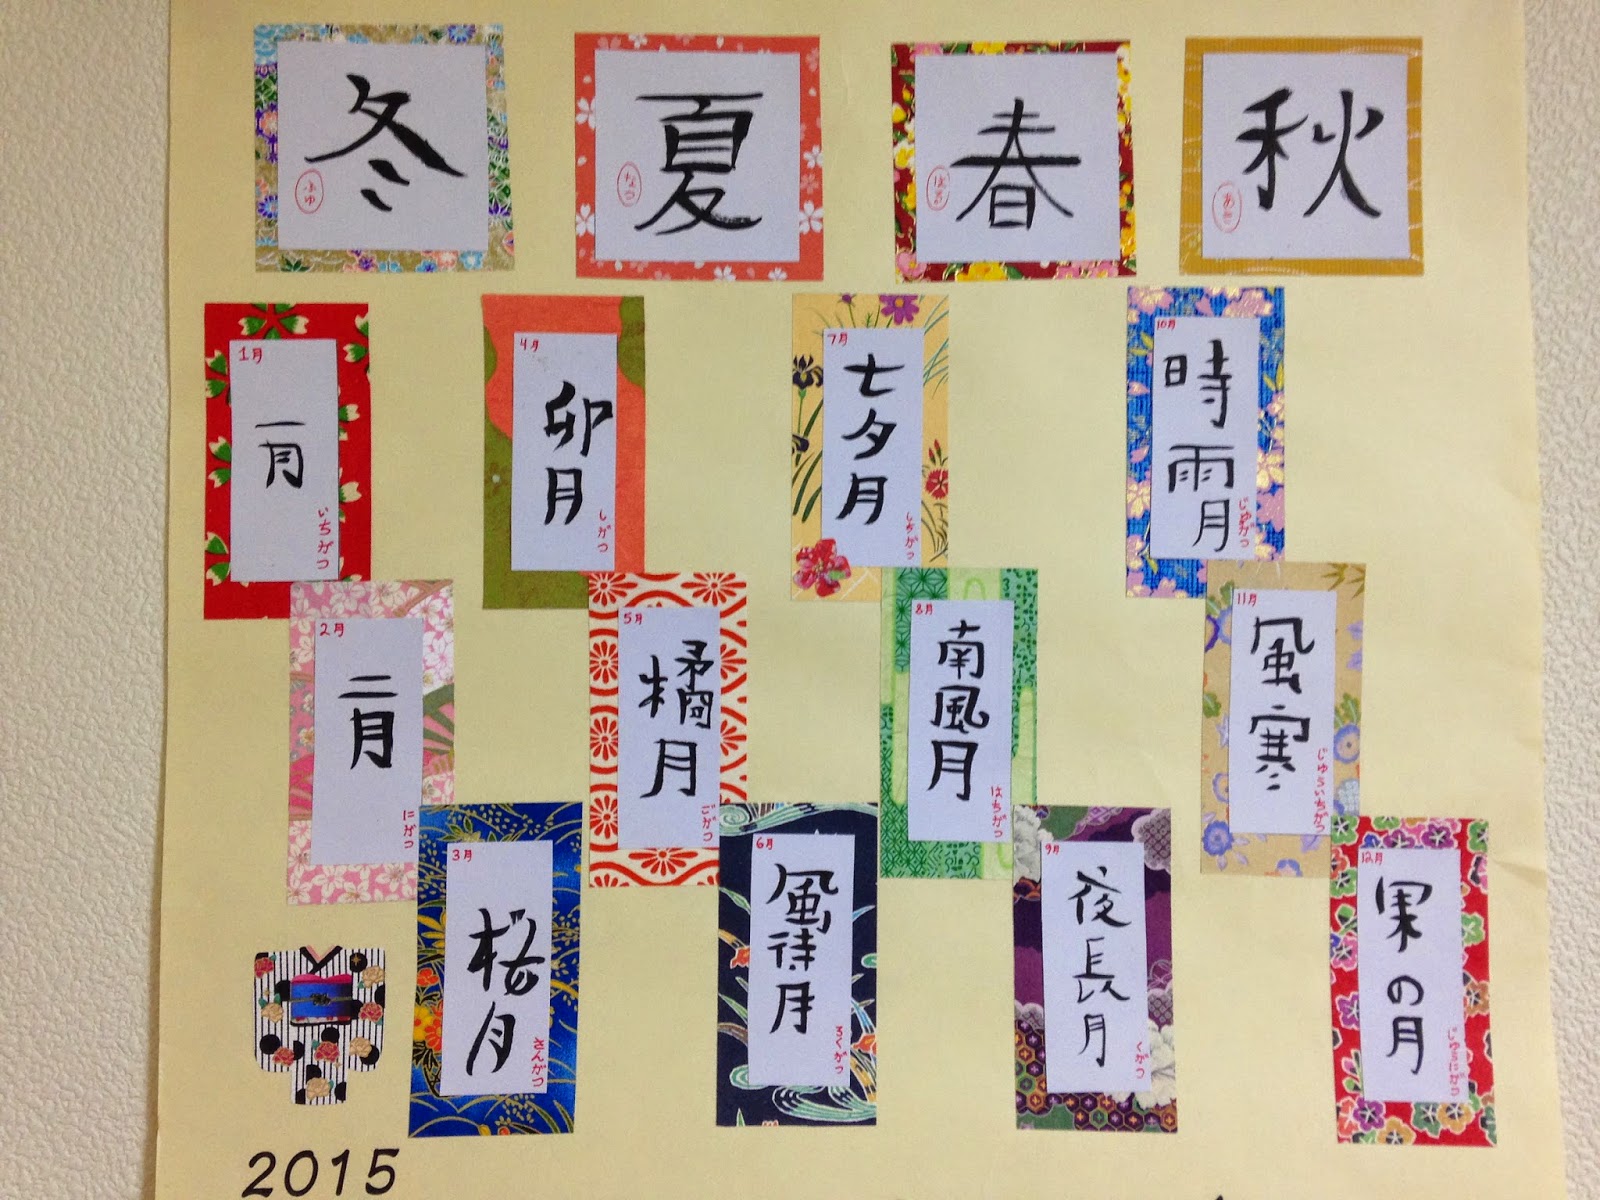 冬
ふゆ
夏
なつ
春
はる
秋
あき
1月
一月
いちがつ
4月
卯月
しがつ
7月
七夕月
しちがつ
10月
時雨月
じゅがつ
2月
二月
にがつ
5月
橘月
ごがつ
8月
南風月
はちがつ
11月
風寒
じゅういちがつ
3月
桜月
さんがつ
6月
風待月
ろくがつ
9月
夜長月
くがつ
12月
果の月
じゅうにがつ
2015